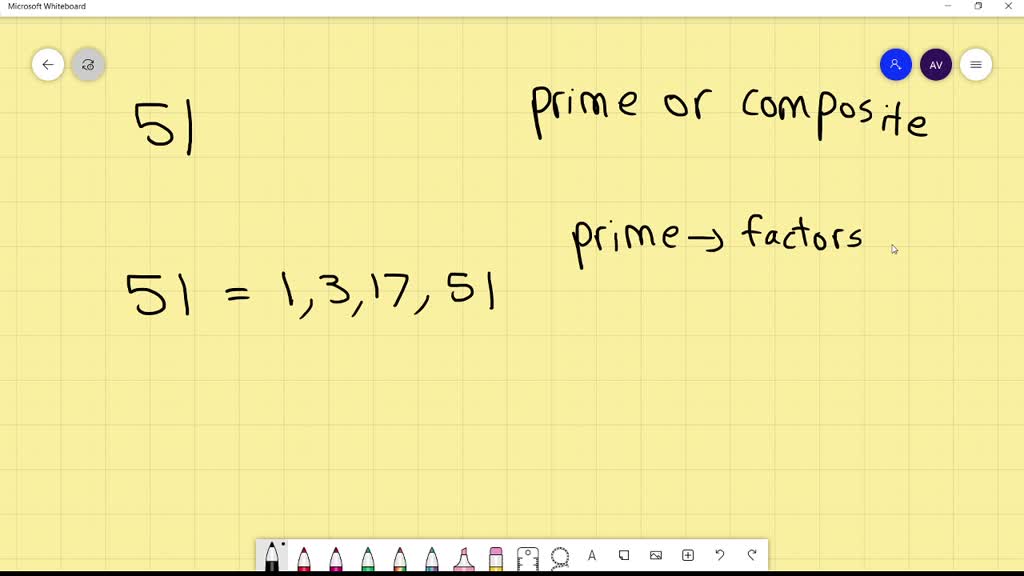 Microsoft Whiteboard
AV
51
prime or composite
prime → factors
51 = 1, 3, 17, 51
A